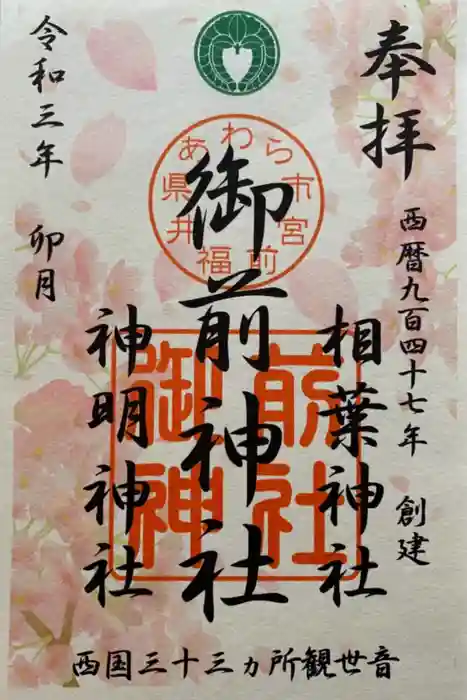 奉拝
西暦九百四十七年 創建
相葉神社
御前神社
神明神社
令和三年 卯月
福井県あわら市宮前
御前
神社
西国三十三ヵ所観世音